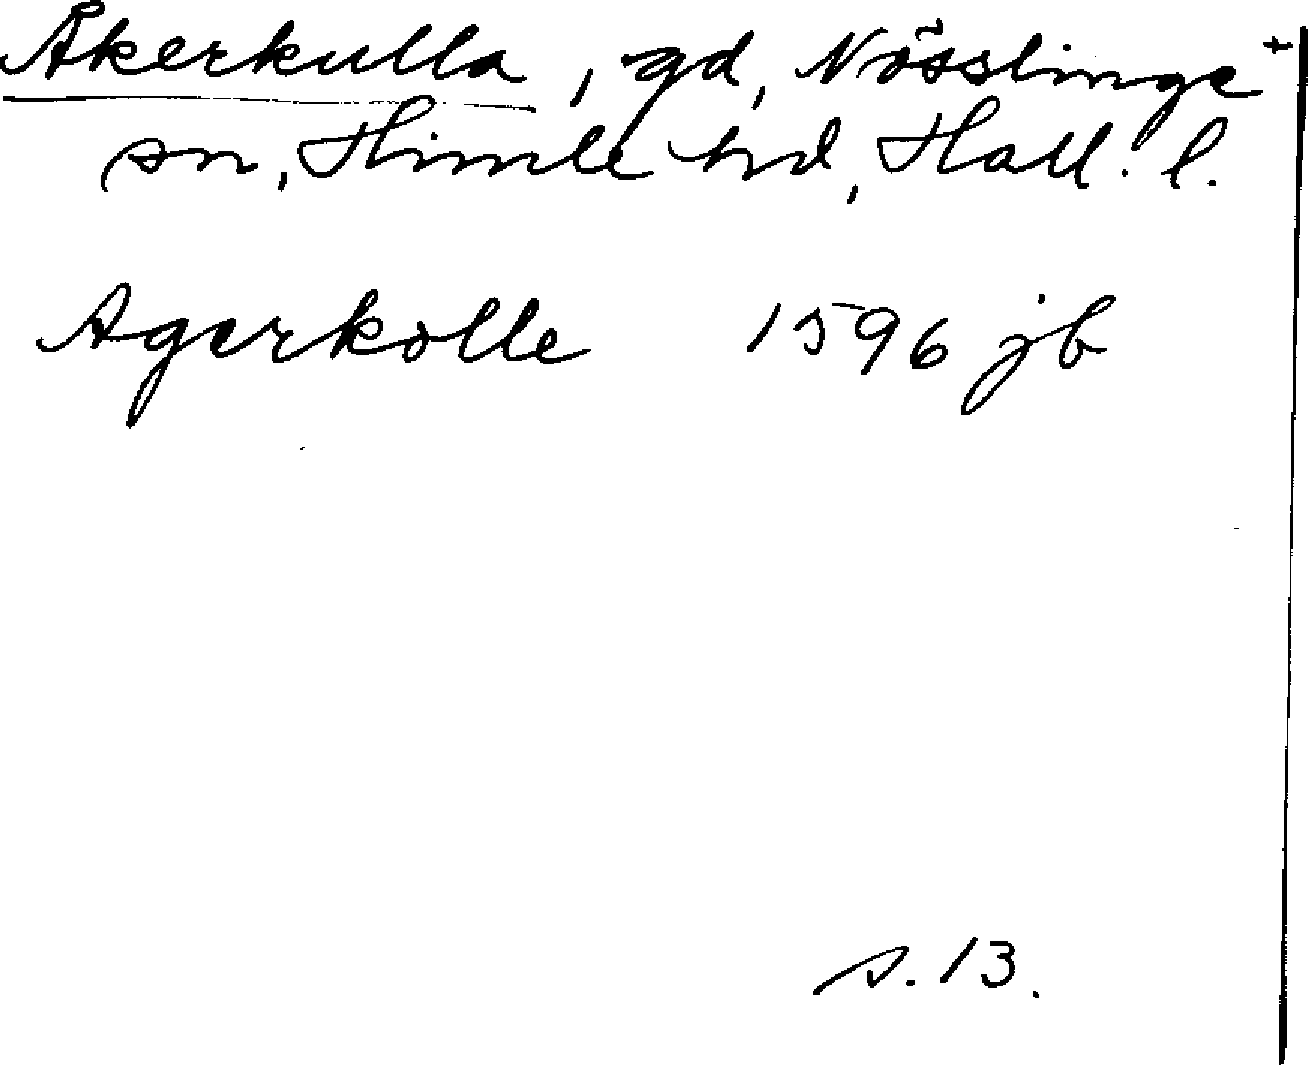 Åkerkulla, gd, Nösslinge +
sn, Himle hd, Hall. l.
Agerkolle 1596 jb
s. 13.